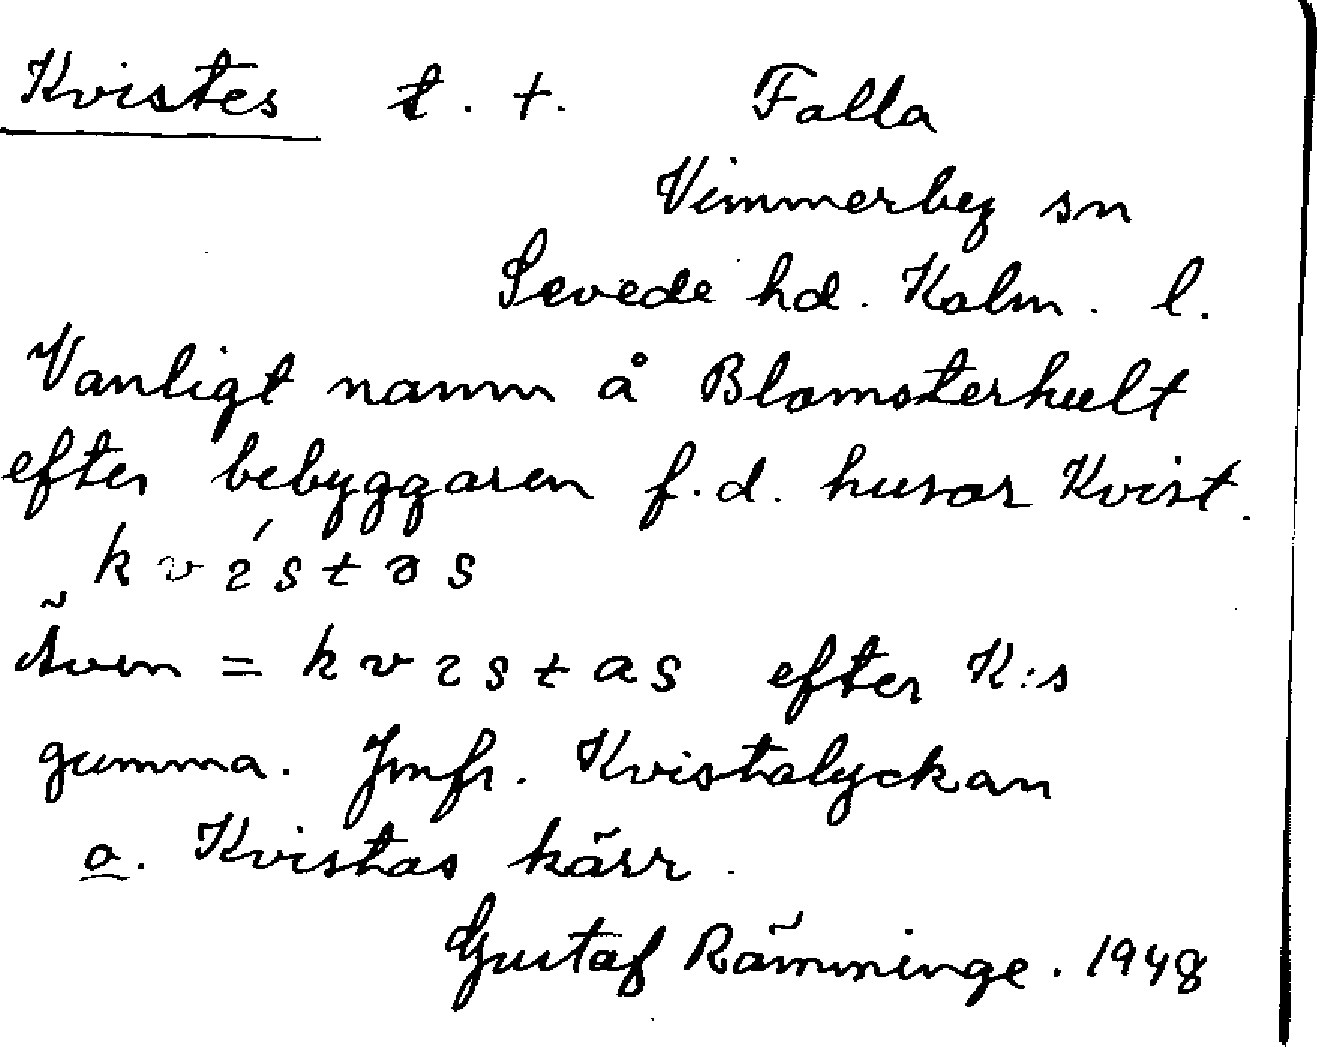 Kvistes t. +. Falla
Vimmerby sn
Sevede hd. Kalm. l.
Vanligt namn å Blomsterhult
efter bebyggaren f.d. husar Kvist.
kvístəs
Även = kvɩstas efter K:s
gumma. Jmfr. Kvistalyckan
o. Kvistas kärr.
Gustaf Rämminge. 1948